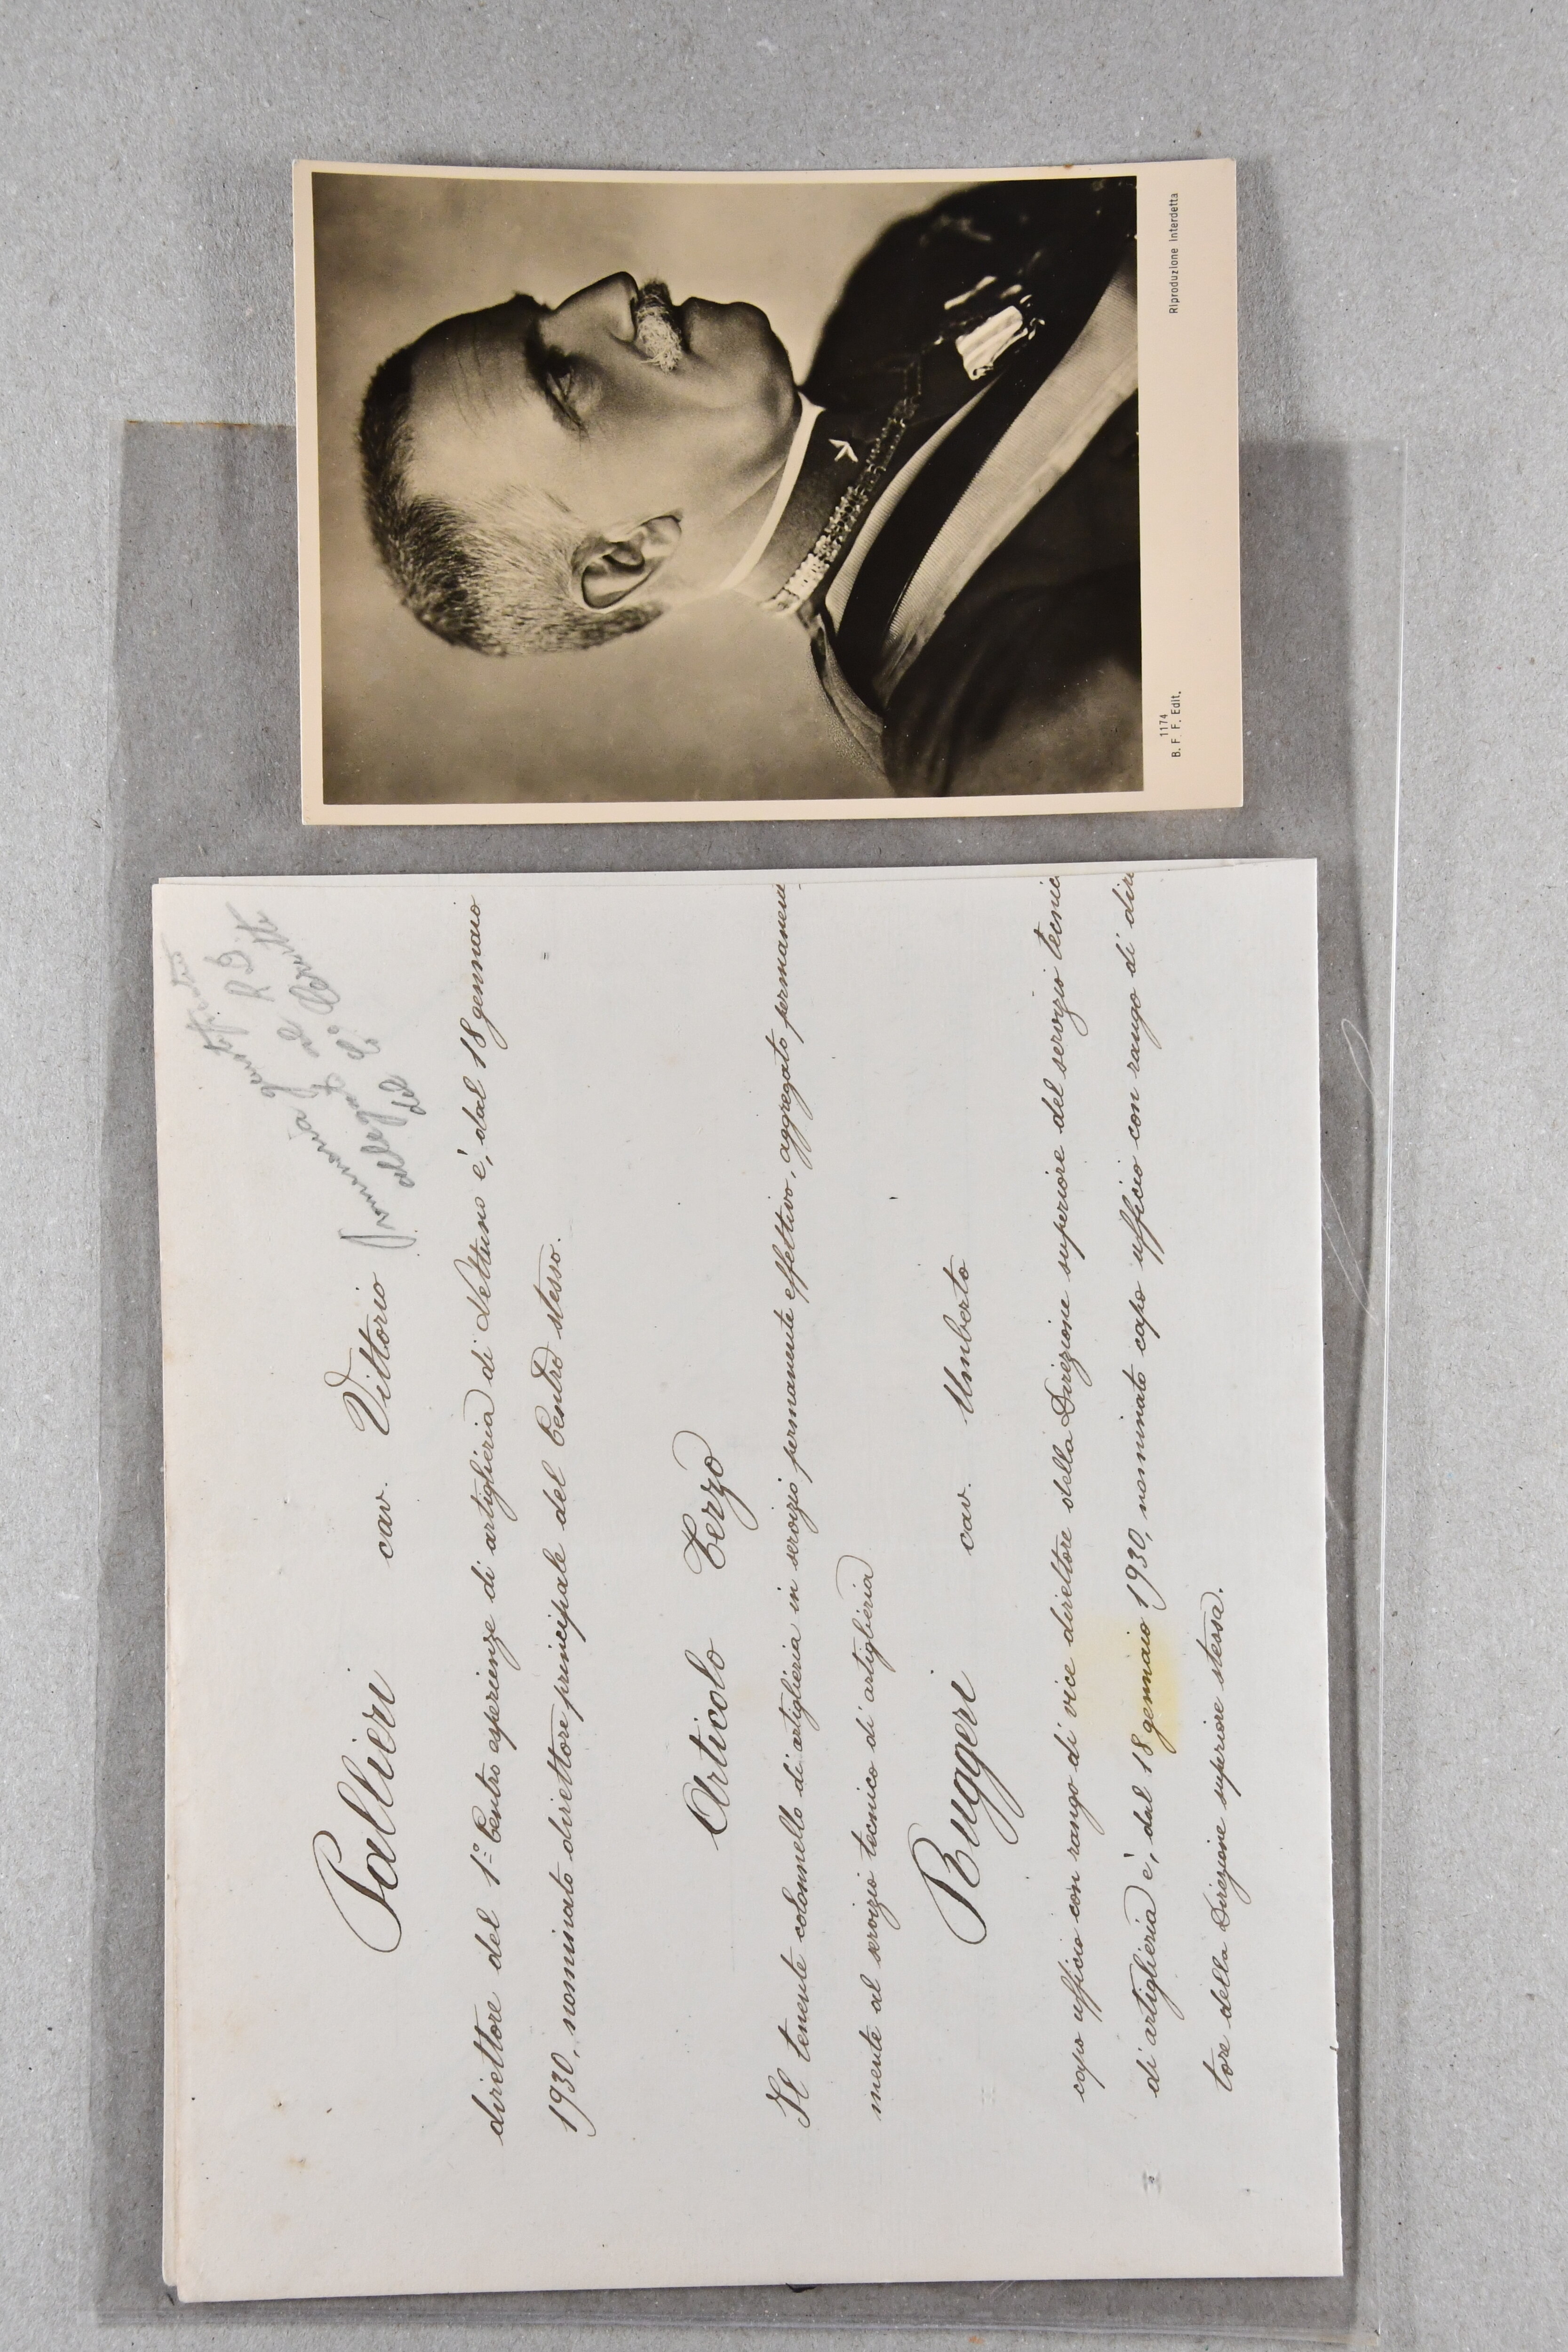 Pallieri cav. Vittorio
direttore del 1º Centro esperienze di artiglieria di Nettuno è, dal 18 gennaio
1930, nominato direttore principale del Centro stesso.
Articolo Terzo
Il tenente colonnello di artiglieria in servizio permanente effettivo, aggregato permanen-
mente al servizio tecnico di artiglieria
Ruggeri cav. Umberto
capo ufficio con rango di vice direttore della Direzione superiore del servizio tecnic
di artiglieria è, dal 18 gennaio 1930, nominato capo ufficio con rango di dire
tore della Direzione superiore stessa.
1174
B. F. F. Edit.
Riproduzione Interdetta